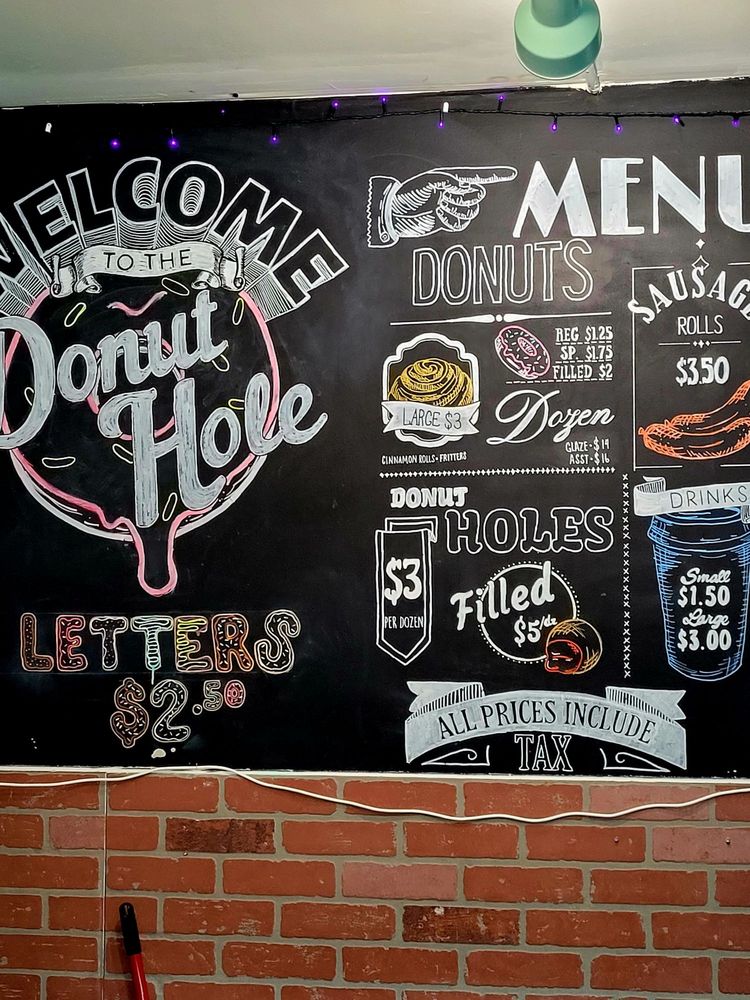 WELCOME
TO THE
Donut
Hole
LETTERS
$2.50
MENU
DONUTS
LARGE $3
CINNAMON ROLLS + FRITTERS
REG $1.25
SP. $1.75
FILLED $2
Dozen
GLAZE - $14
ASST - $16
SAUSAGE
ROLLS
$3.50
DONUT
HOLES
$3
PER DOZEN
Filled
$5/dz
DRINKS
Small
$1.50
Large
$3.00
ALL PRICES INCLUDE
TAX